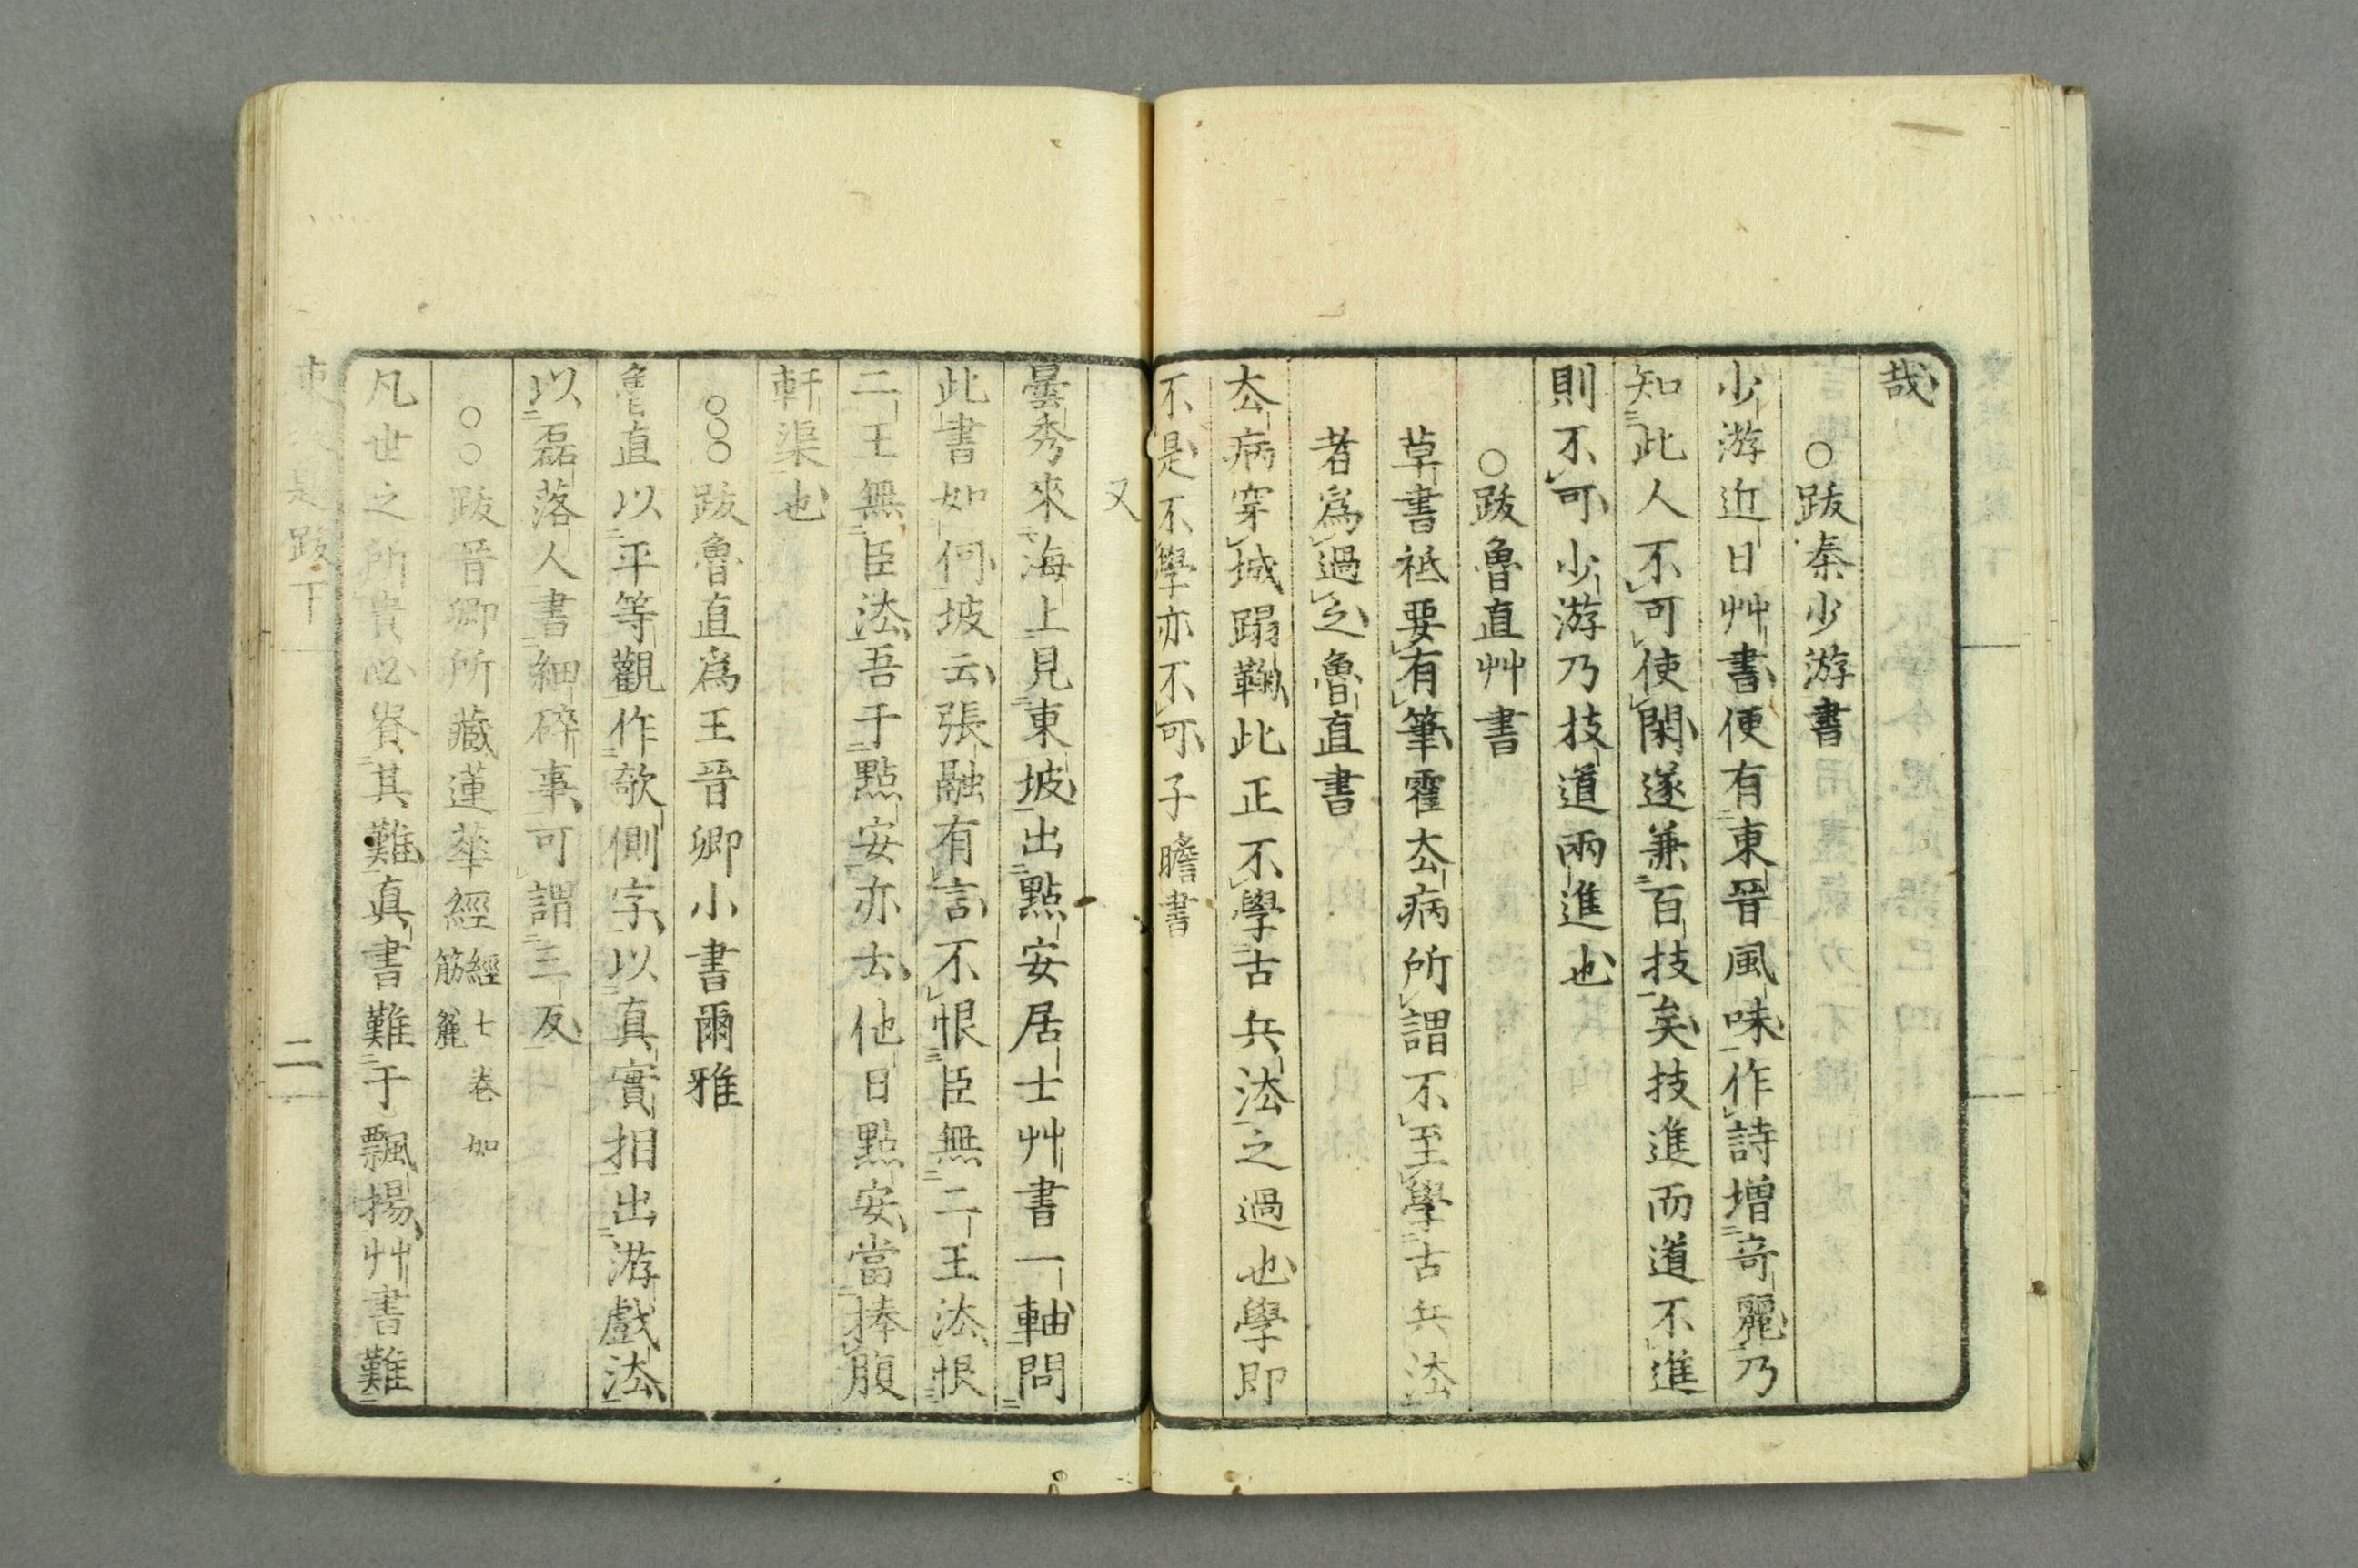 哉
○跋秦少游書
少游近日艸書便有東晉風味作詩增奇麗乃
知此人不可使閑遂兼百技矣技進而道不進
則不可少游乃技道兩進也
○跋魯直艸書
草書祗要有筆霍去病所謂不至學古兵法
者爲過之魯直書
去病穿城蹋鞠此正不學古兵法之過也學即
不是不學亦不可子瞻書
又
曇秀來海上見東坡出點安居士艸書一軸問
此書如何坡云張融有言不恨臣無二王法恨
二王無臣法吾于點安亦云他日點安當捧腹
軒渠也
○○○跋魯直爲王晉卿小書爾雅
魯直以平等觀作欹側字以真實相出游戲法
以磊落人書細碎事可謂三反
○○跋晉卿所藏蓮華經 經七卷如筋麄
凡世之所貴必貴其難真書難于飄揚艸書難
題跋下
二